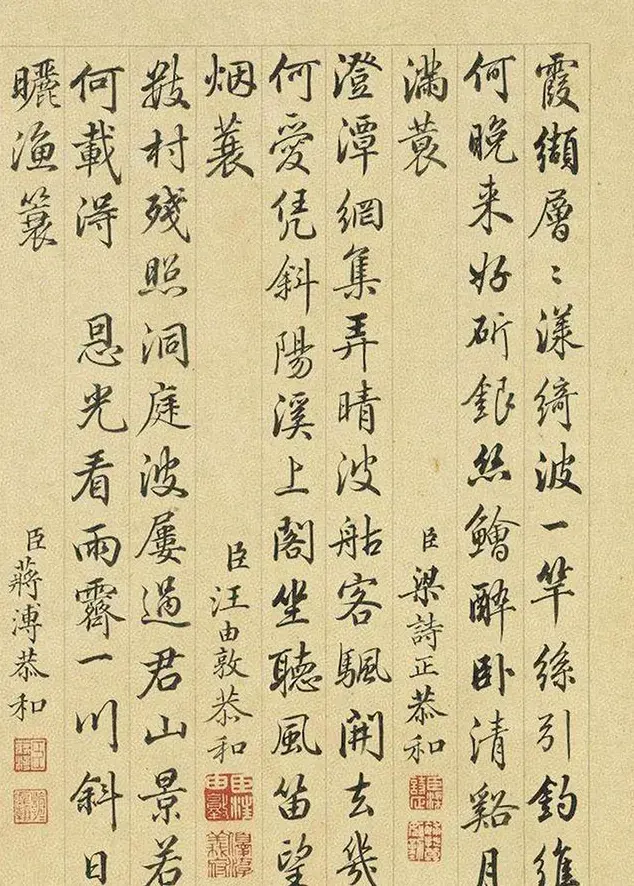 霞纈層〻漾綺波一竿絲引釣維
何晚来好斫銀絲鱠醉卧清谿月
滿蓑
臣梁詩正恭和
澄潭網集弄晴波客颿開去幾
何愛凭斜陽溪上閣坐聽風笛望
烟蓑
臣汪由敦恭和
數村殘照洞庭波屢過君山景若
何載得 恩光看雨霽一川斜日
曬漁簑
臣蔣溥恭和